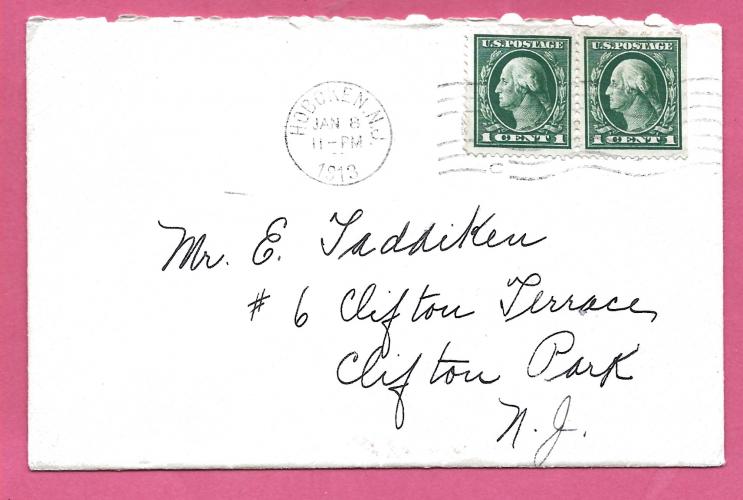 U.S. POSTAGE
1 CENT 1
U.S. POSTAGE
1 CENT 1
HOBOKEN, N.J.
JAN 8
11-PM
1913
C
Mr. E. Taddiken
# 6 Clifton Terrace,
Clifton Park
N. J.